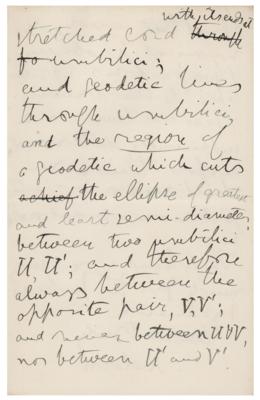 with its ends at
stretched cord through
fo umbilici;
and geodetic lines
through umbilici,
and the region of
a geodetic which cuts
achief the ellipse of greatest
and least semi-diameter,
between two umbilici
U, U'; and therefore
always between the
opposite pair, V, V';
and never between UV,
nor between U' and V'.